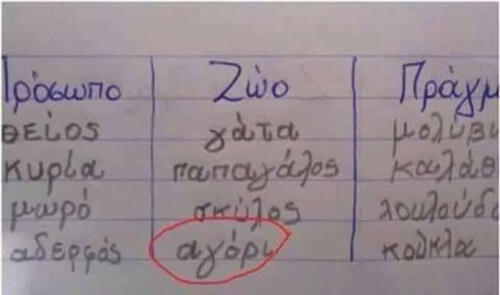 Πρόσωπο Ζώο Πράγμ
θείος γάτα μολύβι
κυρία παπαγάλος καλάθ
μωρό σκύλος λουλούδι
αδερφός αγόρι κούκλα